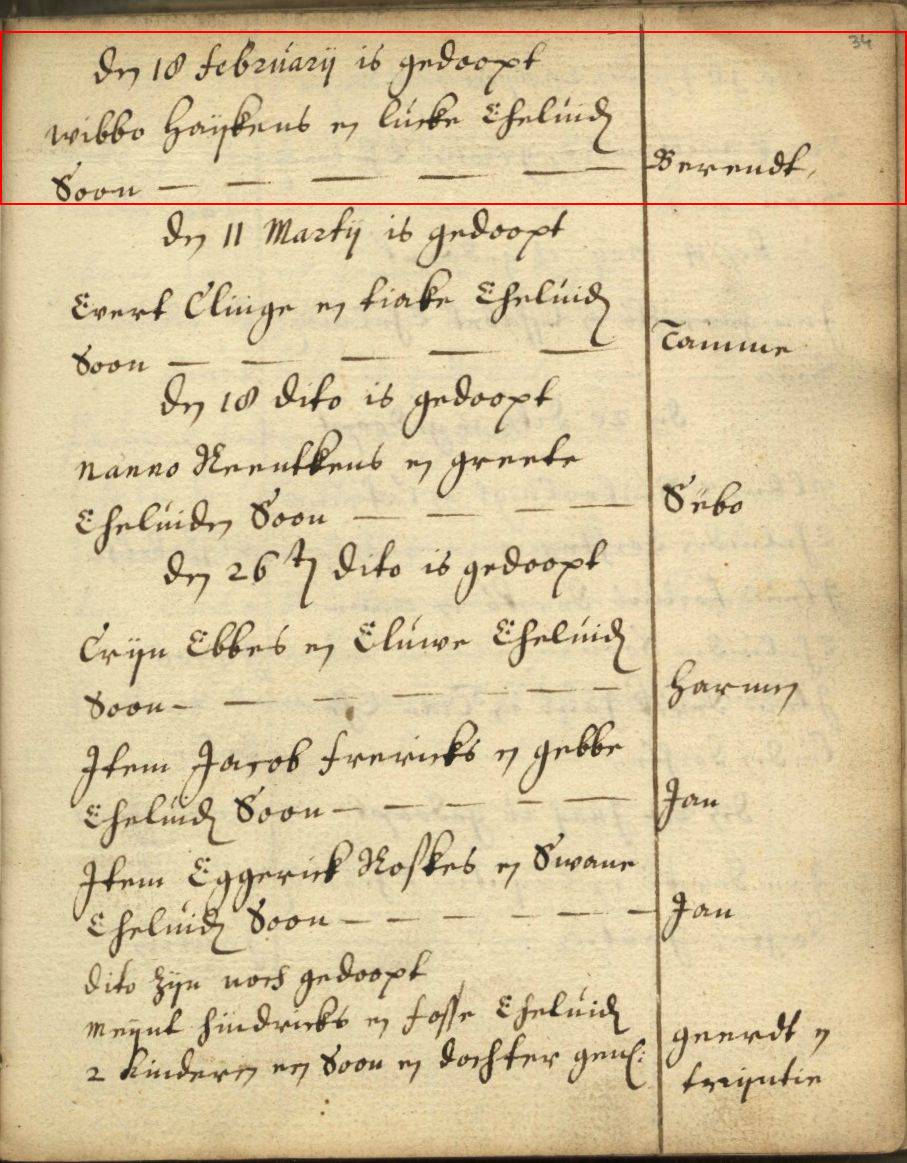 34
den 18 februarij is gedoopt
wibbo Haijkens en lucke Eheluiden
Soon — — — — — Berendt,
den 11 Martij is gedoopt
Evert Clinge en tiake Eheluiden
Soon — — — — — Tamme
den 18 dito is gedoopt
nanno Reentkens en greete
Eheluiden Soon — — — — Sebo
den 26 ten dito is gedoopt
Crijn Ebbes en Eluwe Eheluiden
Soon — — — — — — Harmen
Item Jacob frericks en gebbe
Eheluiden Soon — — — — — Jan
Item Eggerick Roskes en Swane
Eheluiden Soon — — — — — — Jan
dito zijn noch gedoopt
Meijnt hindricks en fosse Eheluiden
2 kinderen een Soon en dochter gen: geerdt en
trijntie